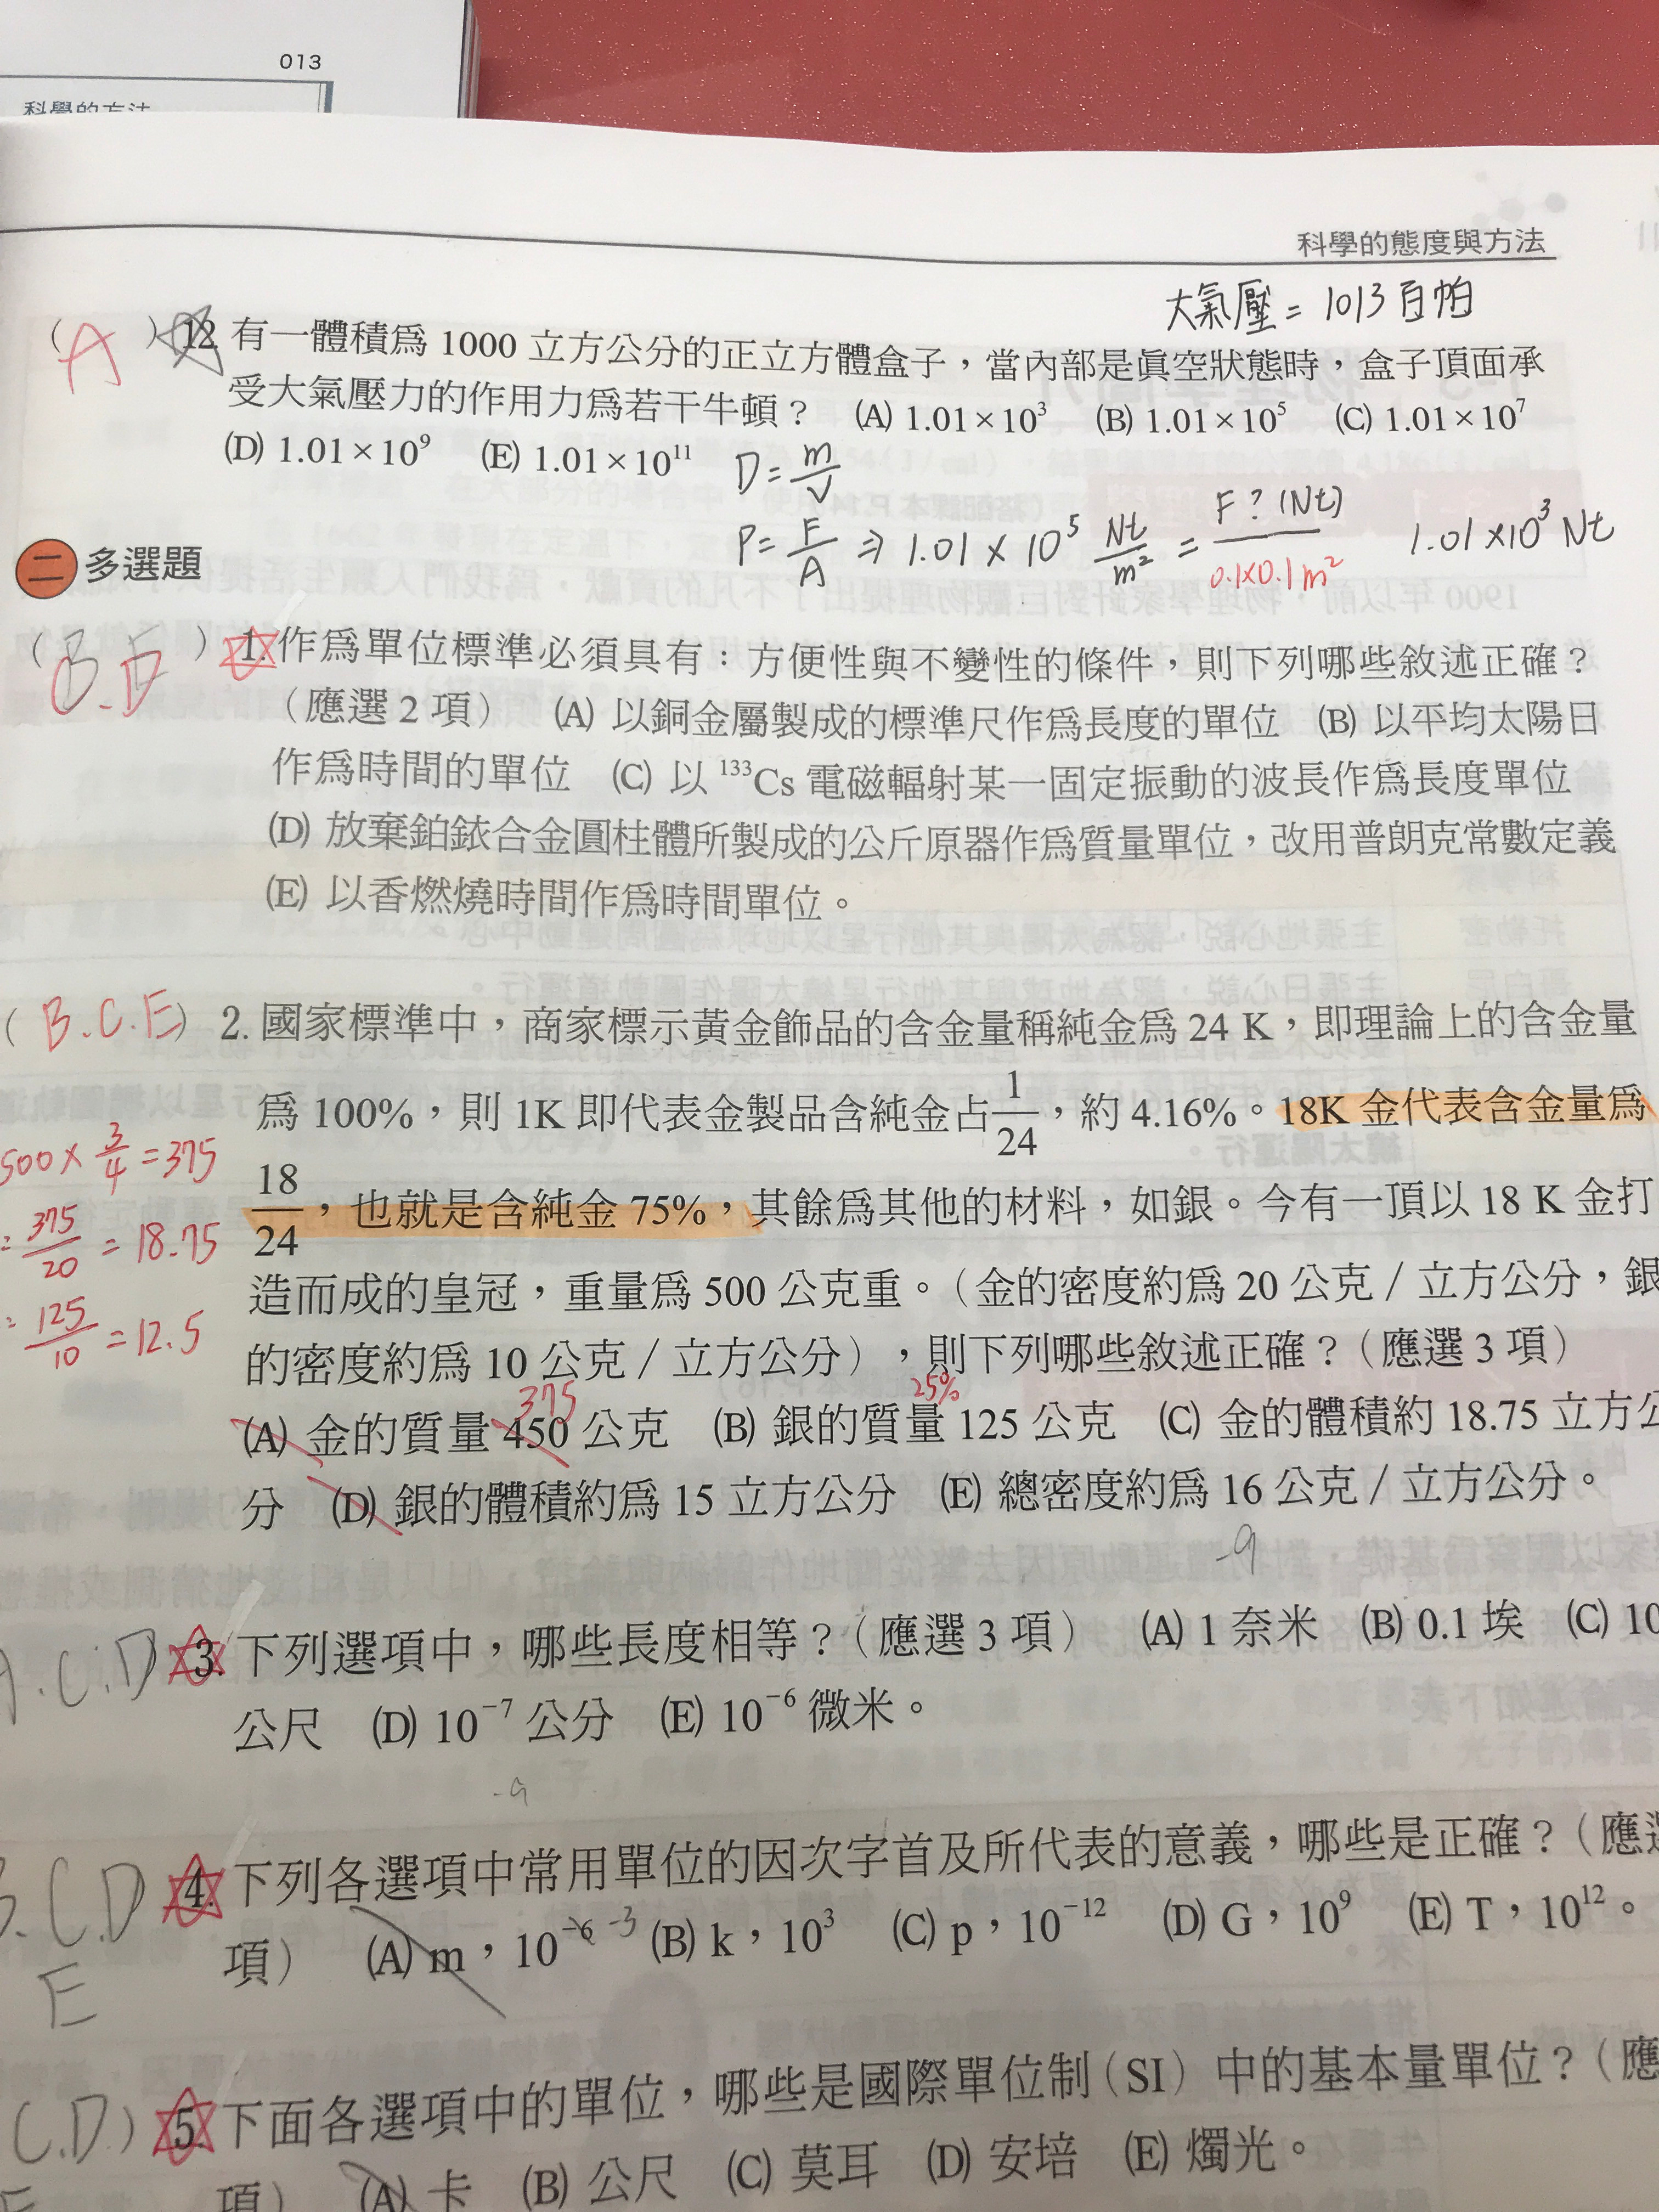 013
科學的方法
科學的態度與方法
大氣壓 = 1013百帕
( A ) 12 有一體積為 1000 立方公分的正立方體盒子，當內部是真空狀態時，盒子頂面承
受大氣壓力的作用力為若干牛頓？ (A) 1.01×10³ (B) 1.01×10⁵ (C) 1.01×10⁷
(D) 1.01×10⁹ (E) 1.01×10¹¹ D = m/V
P = F/A ⇒ 1.01 × 10⁵ Nt/m² = F?(Nt)/0.1×0.1m² 1.01×10³ Nt
二 多選題
( B.D ) 1. 作為單位標準必須具有：方便性與不變性的條件，則下列哪些敘述正確？
（應選 2 項） (A) 以銅金屬製成的標準尺作為長度的單位 (B) 以平均太陽日
作為時間的單位 (C) 以 ¹³³Cs 電磁輻射某一固定振動的波長作為長度單位
(D) 放棄鉑銥合金圓柱體所製成的公斤原器作為質量單位，改用普朗克常數定義
(E) 以香燃燒時間作為時間單位。
( B.C.E ) 2. 國家標準中，商家標示黃金飾品的含金量稱純金為 24 K，即理論上的含金量
為 100%，則 1K 即代表金製品含純金占 1/24，約 4.16%。18K 金代表含金量為
500 × 3/4 = 375
18/24，也就是含純金 75%，其餘為其他的材料，如銀。今有一頂以 18 K 金打
375/20 = 18.75
造而成的皇冠，重量為 500 公克重。（金的密度約為 20 公克／立方公分，銀
125/10 = 12.5
的密度約為 10 公克／立方公分），則下列哪些敘述正確？（應選 3 項）
375 25%
(A) 金的質量 450 公克 (B) 銀的質量 125 公克 (C) 金的體積約 18.75 立方公
分 (D) 銀的體積約為 15 立方公分 (E) 總密度約為 16 公克／立方公分。
-9
A.C.D ) 3. 下列選項中，哪些長度相等？（應選 3 項） (A) 1 奈米 (B) 0.1 埃 (C) 10
公尺 (D) 10⁻⁷ 公分 (E) 10⁻⁶ 微米。
-9
B.C.D 4. 下列各選項中常用單位的因次字首及所代表的意義，哪些是正確？（應選
E
項） (A) m，10⁻⁶ -3 (B) k，10³ (C) p，10⁻¹² (D) G，10⁹ (E) T，10¹²。
C.D. ) 5. 下面各選項中的單位，哪些是國際單位制（SI）中的基本量單位？（應
E
項） (A) 卡 (B) 公尺 (C) 莫耳 (D) 安培 (E) 燭光。